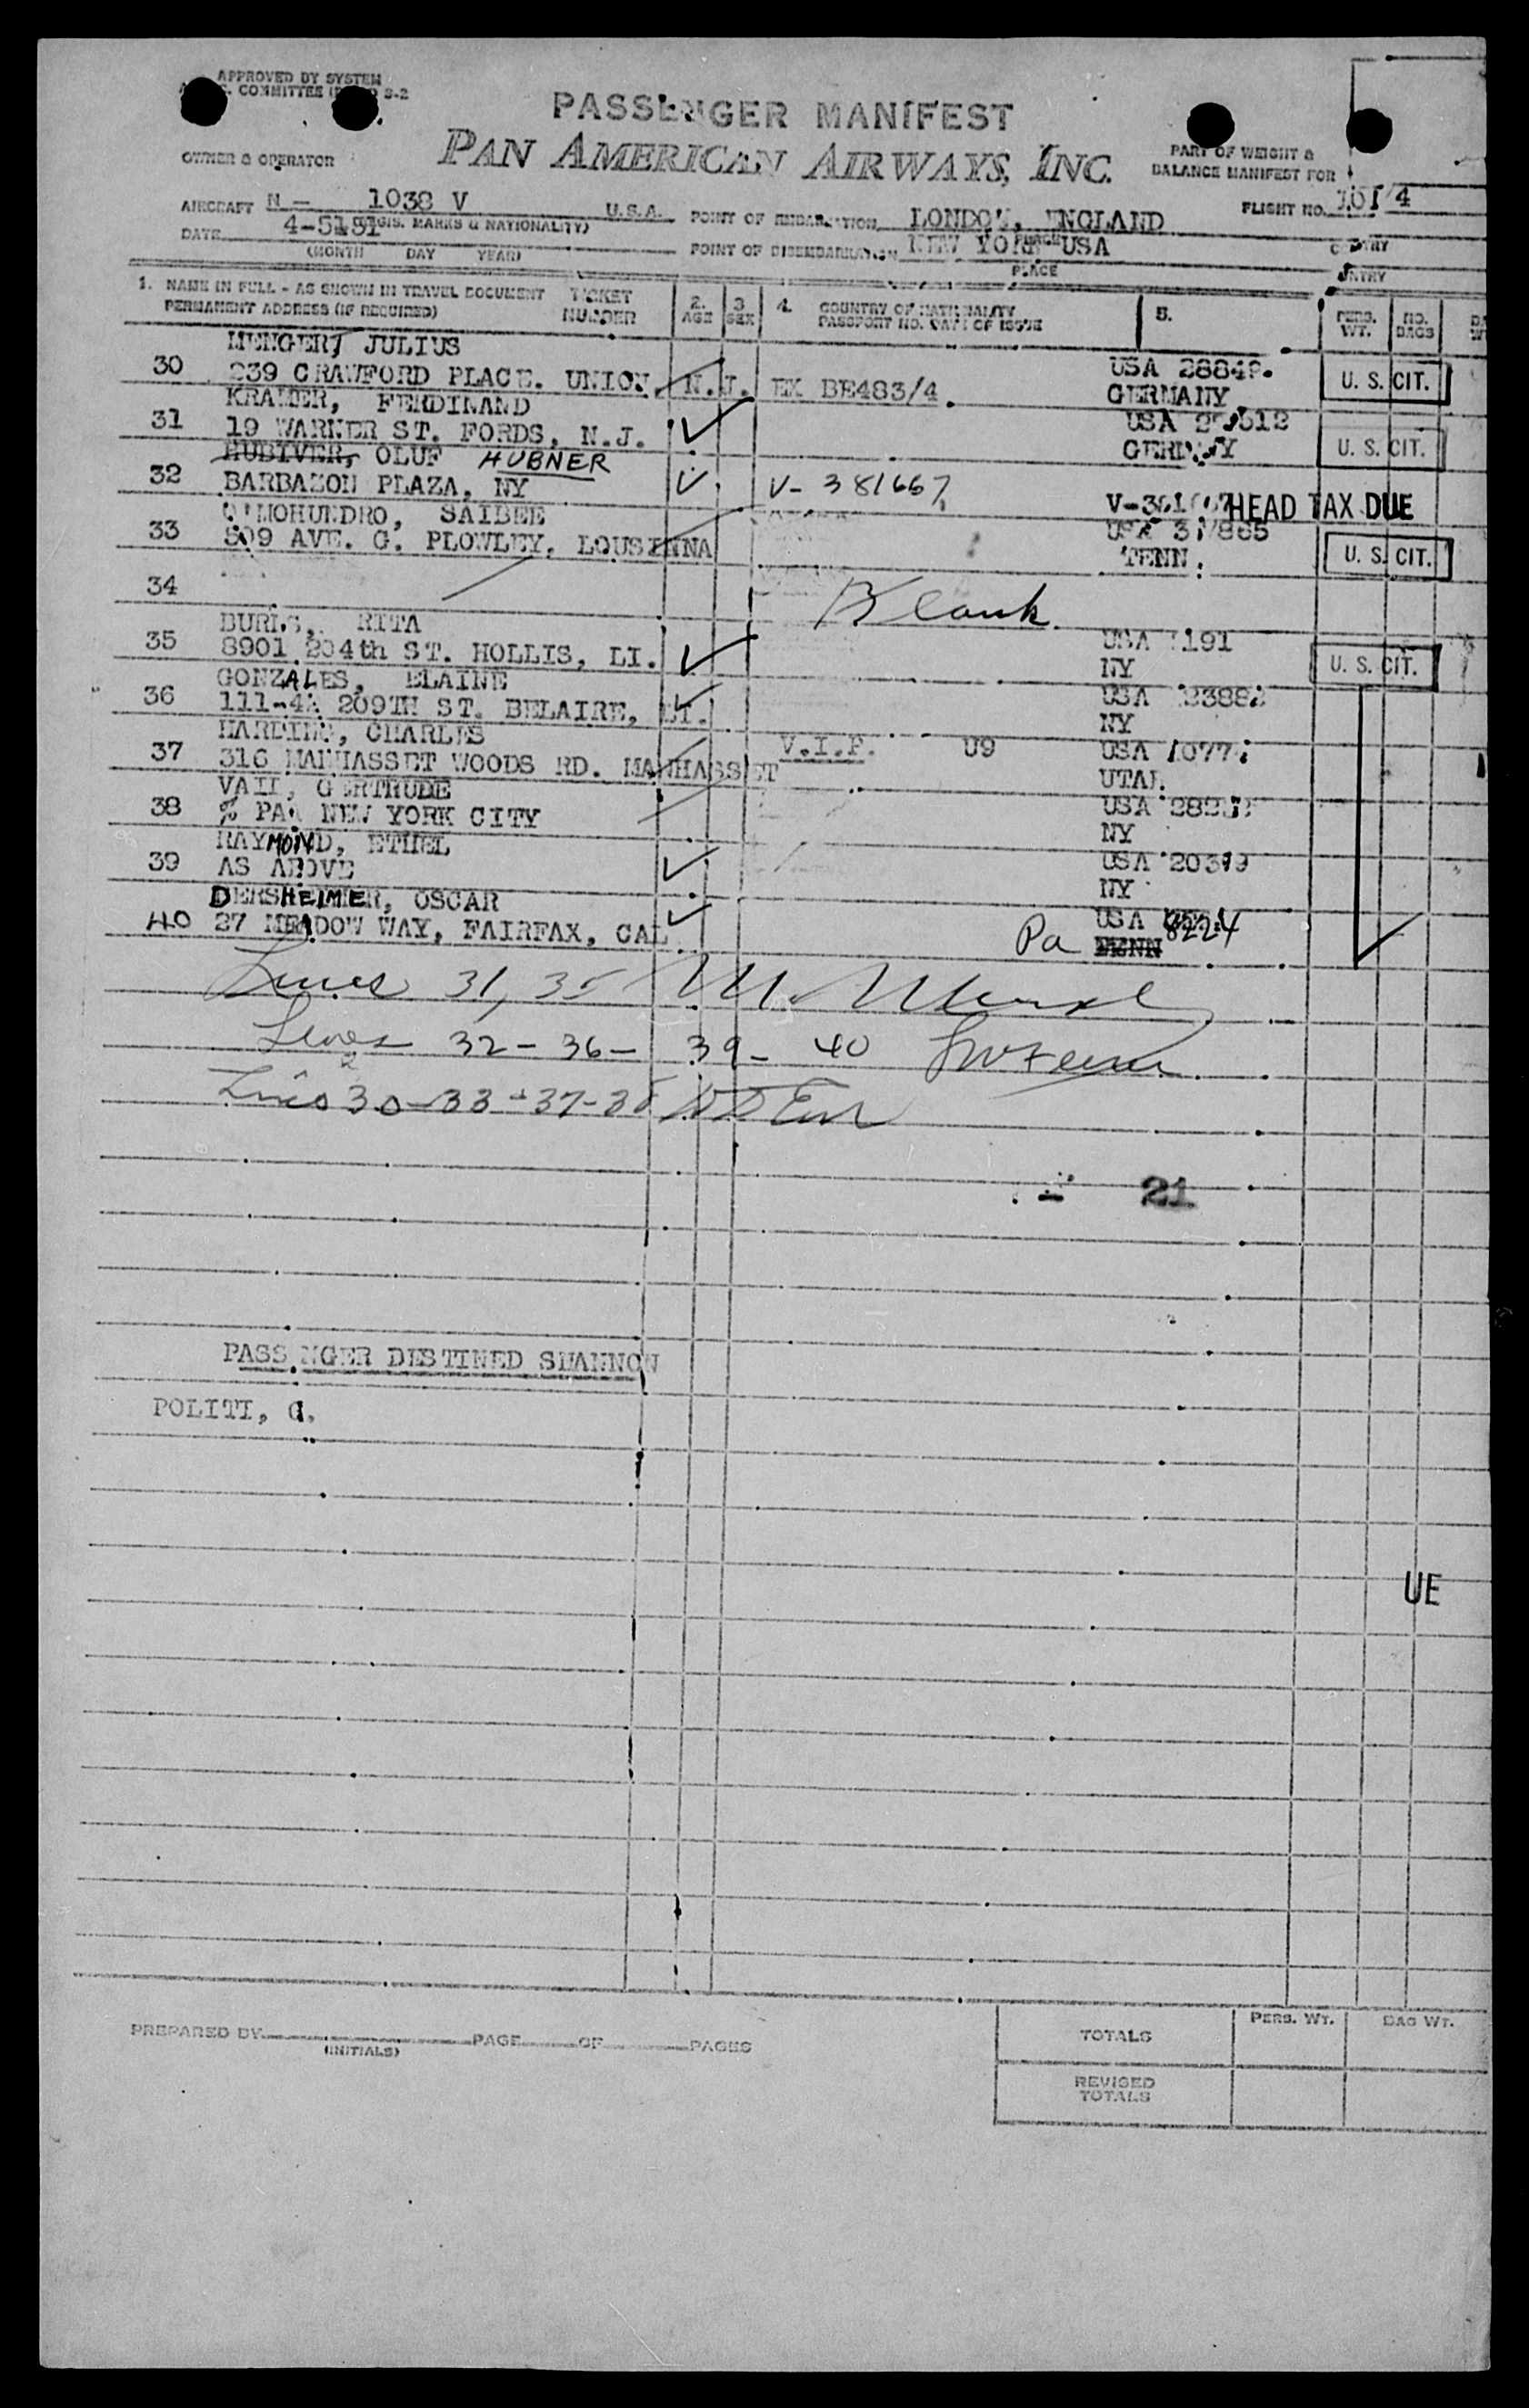 APPROVED BY SYSTEM
COMMITTEE S-2
PASSENGER MANIFEST
OWNER & OPERATOR PAN AMERICAN AIRWAYS, INC. PART OF WEIGHT &
BALANCE MANIFEST FOR
AIRCRAFT N - 1038 V U.S.A. POINT OF EMBARKATION LONDON, ENGLAND FLIGHT NO. 101/4
MARKS & NATIONALITY)
DATE 4-5151 POINT OF DISEMBARKATION NEW YORK USA
(MONTH DAY YEAR) PLACE
1. NAME IN FULL - AS SHOWN IN TRAVEL DOCUMENT TICKET 2. 3 4. COUNTRY OF NATIONALITY 5. PERS. NO.
PERMANENT ADDRESS (IF REQUIRED) NUMBER AGE SEX PASSPORT NO. DATE OF ISSUE WT. BAGS
MENGERT JULIUS
30 239 CRAWFORD PLACE. UNION, N.J. EX BE483/4. USA GERMANY U. S. CIT.
KRAMER, FERDINAND
31 19 WARNER ST. FORDS, N.J. USA GERMANY U. S. CIT.
HUBIVER, OLUF HUBNER
32 BARBAZON PLAZA, NY V- 381667 HEAD TAX DUE
OMOHUNDRO, SAIDEE
33 809 AVE. G. PLOWLEY, LOUSIANNA USA TENN. U. S. CIT.
34 Blank
RITA
35 8901 204th ST. HOLLIS, LI. USA NY U. S. CIT.
GONZALES, ELAINE
36 209TH ST. BELAIRE, LI. USA NY
HARDING, CHARLES
37 316 MANHASSET WOODS RD. MANHASSET V.I.P. U9 USA UTAH
VAIL, GERTRUDE
38 % PAA NEW YORK CITY USA NY
RAYMOND, ETHEL
39 AS ABOVE USA NY
DERSHEIMER, OSCAR
40 27 MEADOW WAY, FAIRFAX, CAL Pa USA 8224
Lines 31, 35
Lines 32 - 36 - 39 - 40
Lines 30 - 33 - 37 - 38
21
PASSENGER DESTINED SHANNON
POLITI, G.
UE
PREPARED BY PAGE OF PAGES
(INITIALS)
TOTALS PERS. WT. BAG WT.
REVISED
TOTALS